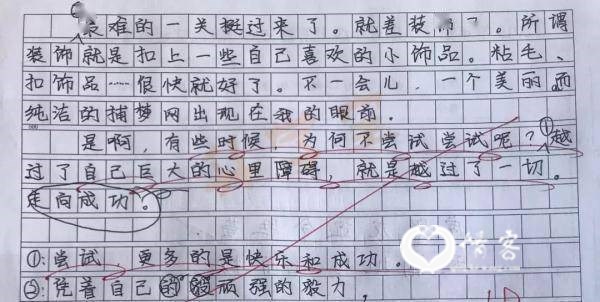 难的一关挺过来了。就差装饰了。所谓
装饰就是扣上一些自己喜欢的小饰品。粘毛、
扣饰品……很快就好了。不一会儿,一个美丽而
纯洁的捕梦网出现在我的眼前。
是啊,有些时候,为何不尝试尝试呢?①越
过了自己巨大的心里障碍,就是越过了一切。
走向成功。
①:尝试,更多的是快乐和成功。
②:凭着自己的顽强的毅力,